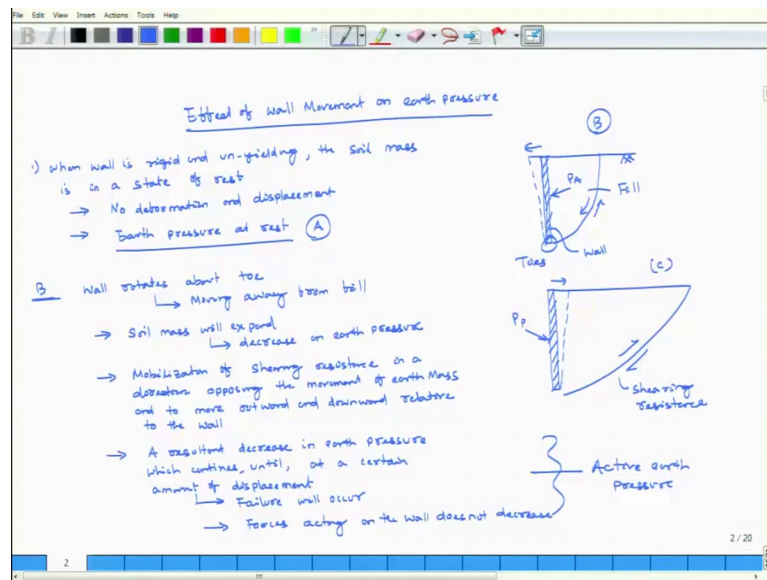 File Edit View Insert Actions Tools Help
B I
Effect of Wall Movement on earth pressure
1) when wall is rigid and un-yielding, the soil mass
is in a state of rest
→ No deformation and displacement
→ Earth pressure at rest A
B Wall rotates about toe
↳ Moving away from fill
→ Soil mass will expand
↳ decrease in earth pressure
→ Mobilization of Shearing resistance in a
direction opposing the movement of earth Mass
and to move outward and downward relative
to the wall
→ A resultant decrease in earth pressure
which contines, until, at a certain
amount of displasement
↳ Failure will occur
→ Forces acting on the wall does not decrease
Active earth
pressure
B
PA
Fill
Wall
Toes
(C)
Pp
Shearing
resistance
2 / 20
2